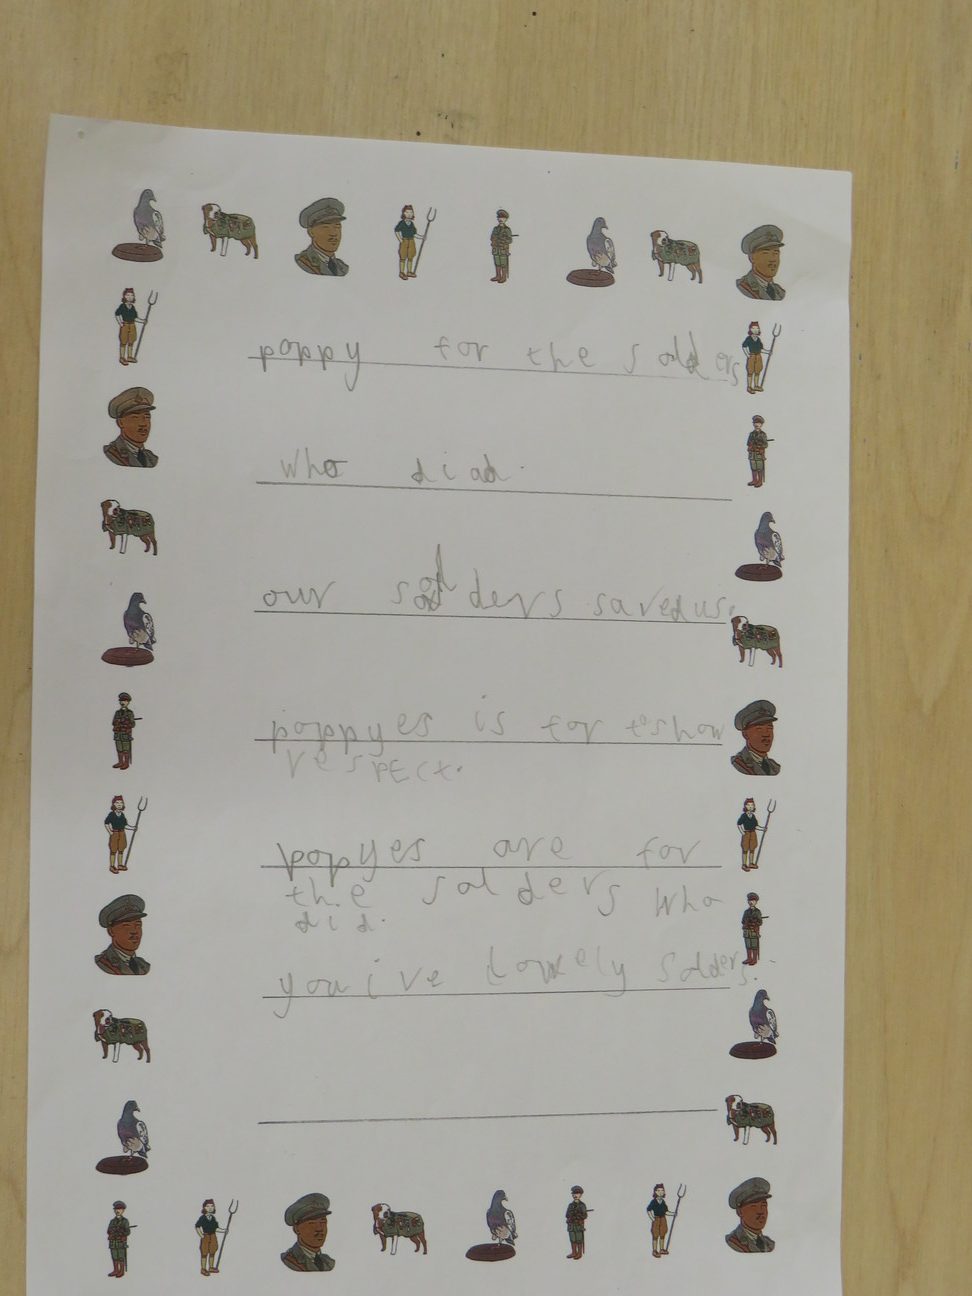 poppy for the solders
who diad.
our solders saved us.
poppyes is for to show
respect.
popyes are for
the solders who
did.
you ive lowely solders.